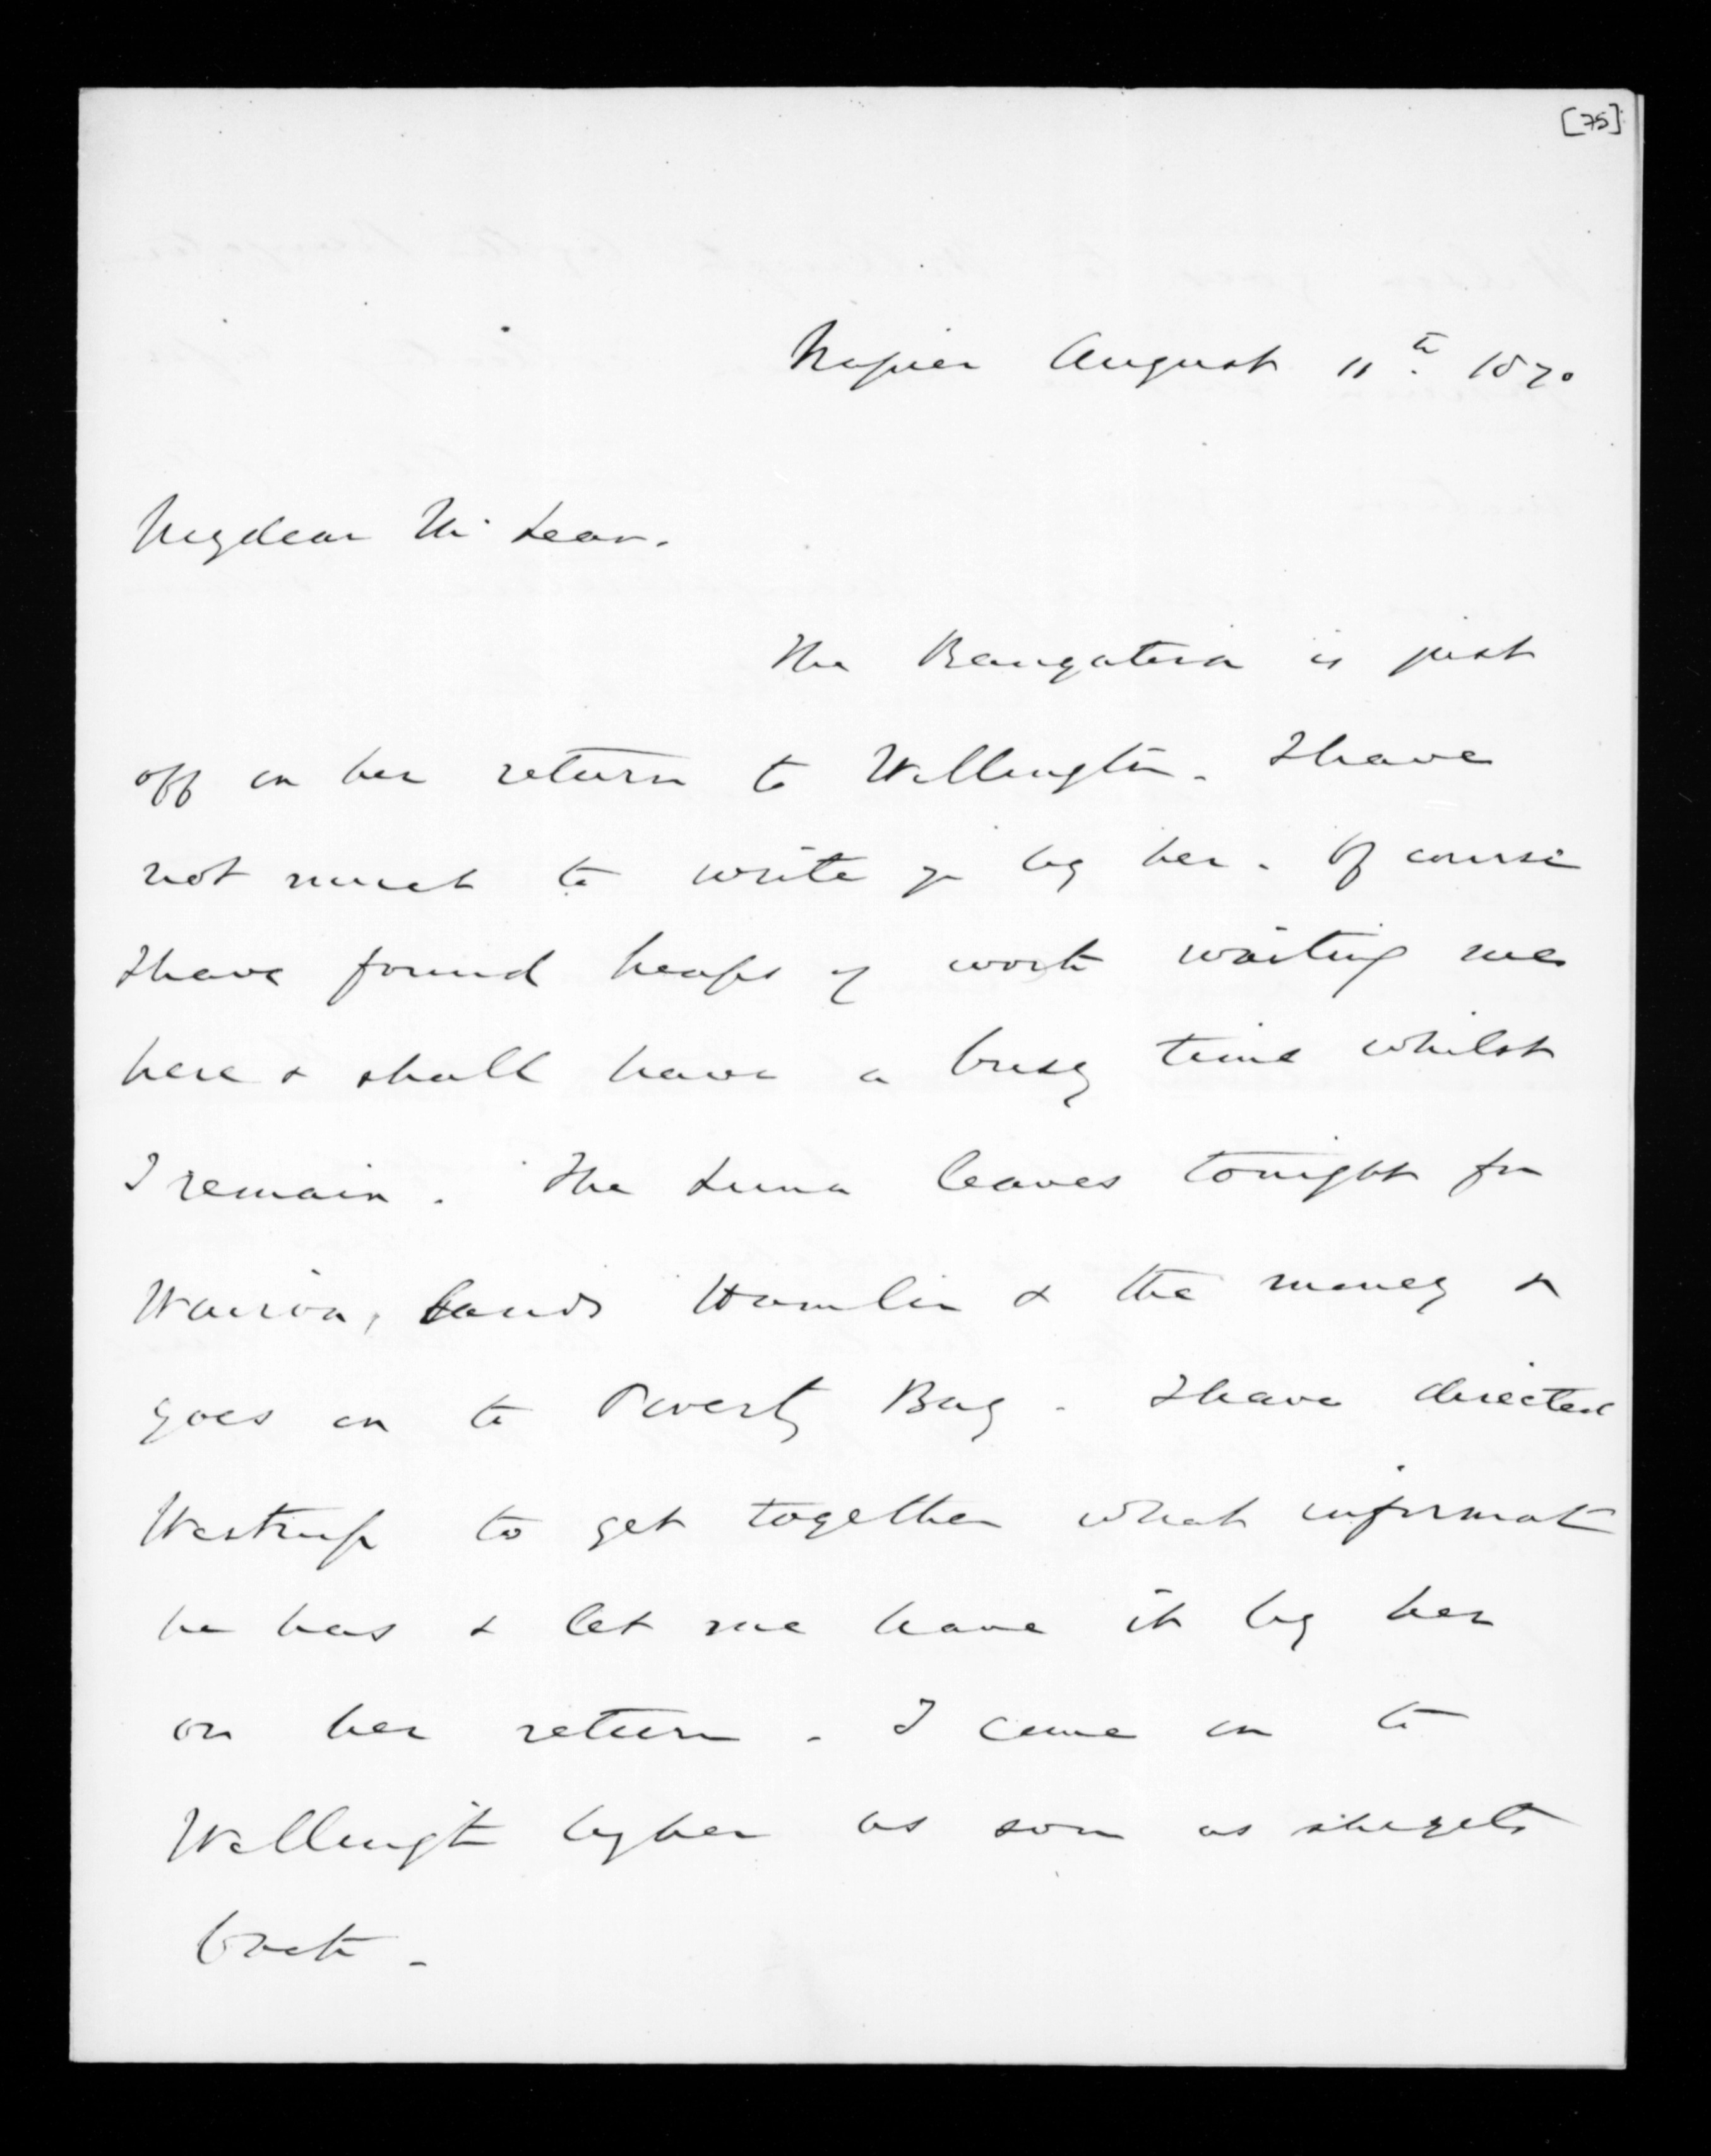 [75]
Napier August 11th 1870
My dear McLean.
The Rangatira is just
off on her return to Wellington. I have
not much to write you by her. Of course
I have found heaps of work waiting me
here & shall have a busy time whilst
I remain. The Luna leaves tonight for
Wairoa, lands Hamlin & the money &
goes on to Poverty Bay. I have directed
Westrup to get together what informat
he has & let me have it by her
on her return. I come on to
Wellingt by her as soon as she gets
back.